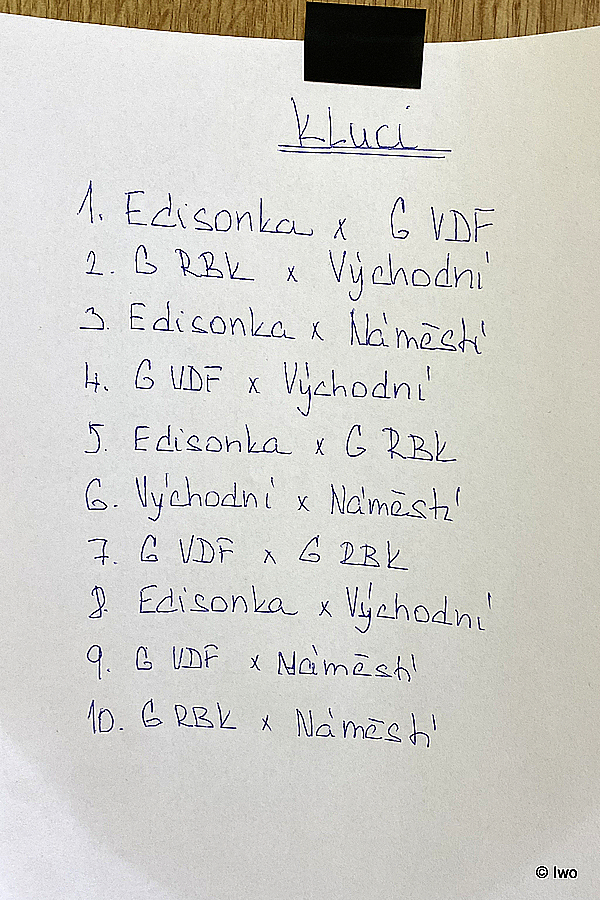 Kluci
1. Edisonka x G VDF
2. G RBK x Východní
3. Edisonka x Náměstí
4. G VDF x Východní
5. Edisonka x G RBK
6. Východní x Náměstí
7. G VDF x G RBK
8. Edisonka x Východní
9. G VDF x Náměstí
10. G RBK x Náměstí
© Iwo